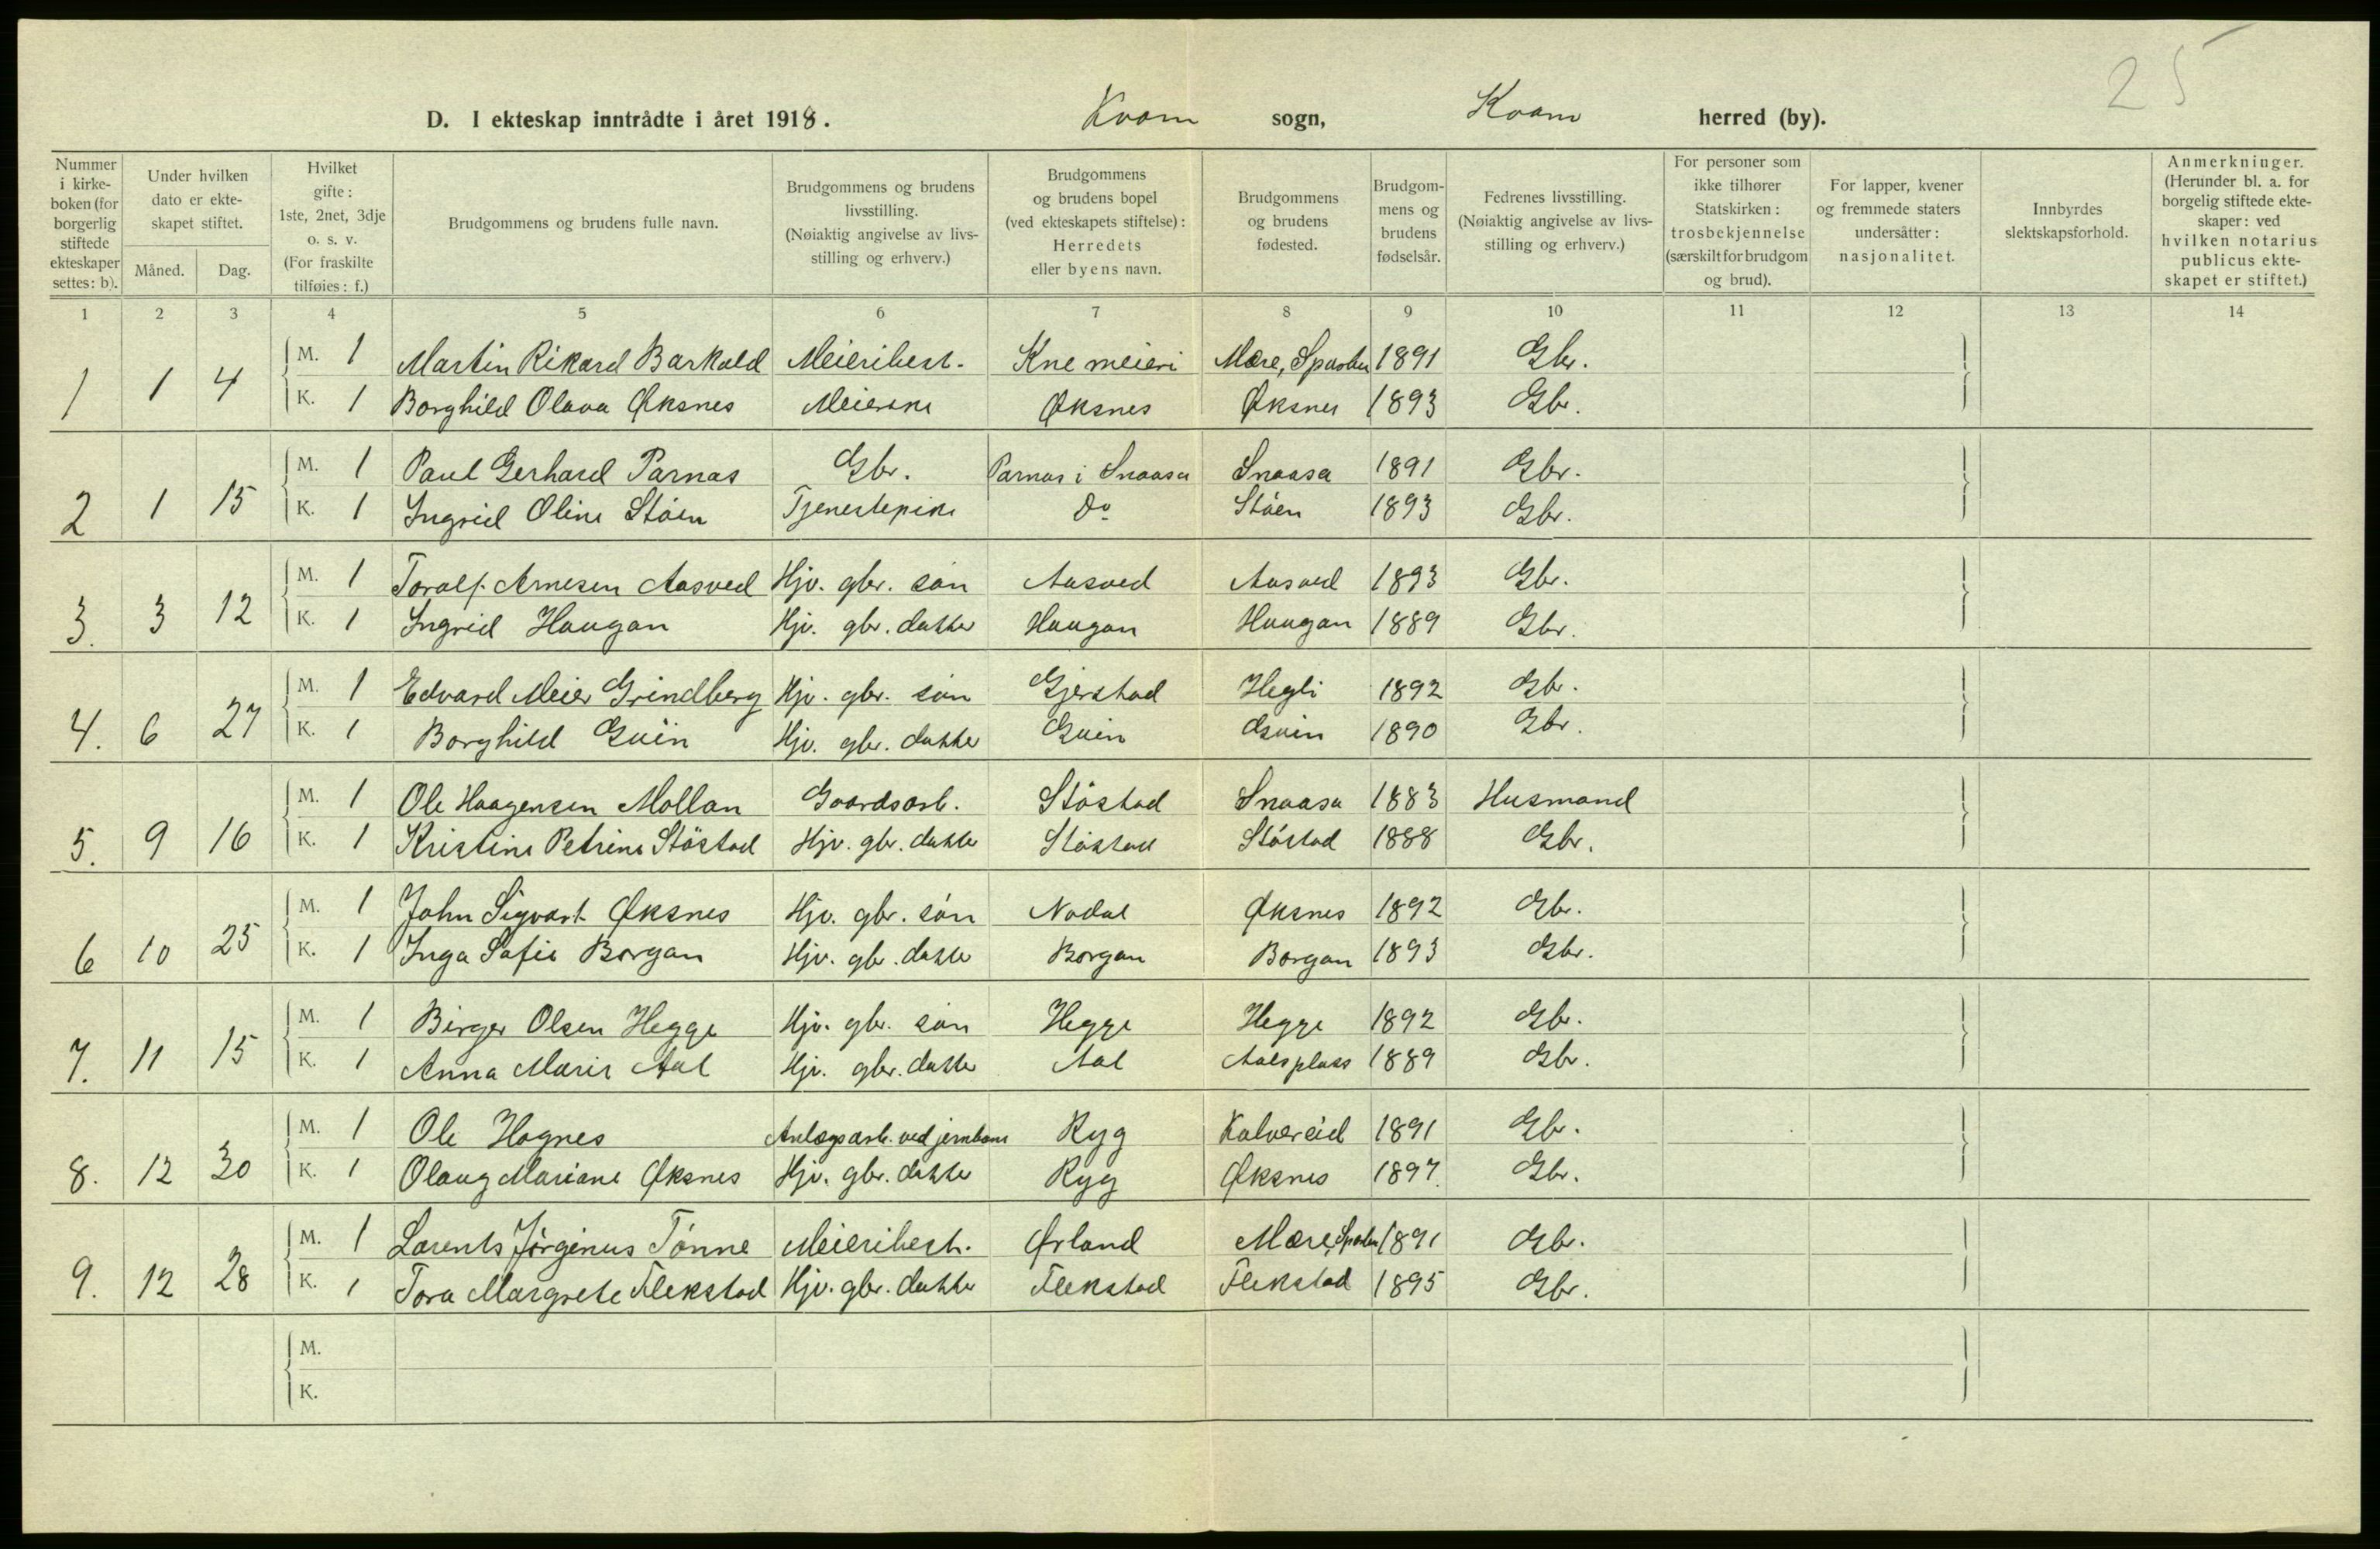 25
D. I ekteskap inntrådte i året 1918. Kvam sogn, Kvam herred (by).
Nummer i kirke-boken (for borgerlig stiftede ekteskaper settes: b). | Under hvilken dato er ekte-skapet stiftet. | Måned. | Dag. | Hvilket gifte: 1ste, 2net, 3dje o. s. v. (For fraskilte tilføies: f.) | Brudgommens og brudens fulle navn. | Brudgommens og brudens livsstilling. (Nøiaktig angivelse av livs-stilling og erhverv.) | Brudgommens og brudens bopel (ved ekteskapets stiftelse): Herredets eller byens navn. | Brudgommens og brudens fødested. | Brudgom-mens og brudens fødselsår. | Fedrenes livsstilling. (Nøiaktig angivelse av livs-stilling og erhverv.) | For personer som ikke tilhører Statskirken: trosbekjennelse (særskilt for brudgom og brud). | For lapper, kvener og fremmede staters undersåtter: nasjonalitet. | Innbyrdes slektskapsforhold. | Anmerkninger. (Herunder bl. a. for borgelig stiftede ekte-skaper: ved hvilken notarius publicus ekte-skapet er stiftet.)
1 2 3 4 5 6 7 8 9 10 11 12 13 14
1 1 4 M. 1 Martin Rikard Barkald Meieribest. Kne meieri Mære, Sparbu 1891 Gbr.
K. 1 Borghild Olava Øksnes Meierske Øksnes Øksnes 1893 Gbr.
2 1 15 M. 1 Paul Gerhard Parnas Gbr. Parnas i Snaasa Snaasa 1891 Gbr.
K. 1 Ingrid Oline Støen Tjenestepike Do Støen 1893 Gbr.
3. 3 12 M. 1 Toralf Arnesen Aasved Hjv. gbr. søn Aasved Aasved 1893 Gbr.
K. 1 Ingrid Haugan Hjv. gbr. datter Haugan Haugan 1889 Gbr.
4. 6 27 M. 1 Edvard Meier Grindberg Hjv. gbr. søn Gjerstad Hegli 1892 Gbr.
K. 1 Borghild Gvin Hjv. gbr. datter Gvin Gvin 1890 Gbr.
5. 9 16 M. 1 Ole Haagensen Mollan Gaardsarb. Støstad Snaasa 1883 Husmand
K. 1 Kristine Petrine Støstad Hjv. gbr. datter Støstad Støstad 1888 Gbr.
6 10 25 M. 1 John Sigvart Øksnes Hjv. gbr. søn Nødal Øksnes 1892 Gbr.
K. 1 Inga Sofie Borgan Hjv. gbr. datter Borgan Borgan 1893 Gbr.
7. 11 15 M. 1 Birger Olsen Hegge Hjv. gbr. søn Hegge Hegge 1892 Gbr.
K. 1 Anna Marie Aal Hjv. gbr. datter Aal Aalsplass 1889 Gbr.
8. 12 30 M. 1 Ole Hognes Anlægsarb. ved jernbane Ryg Kalvereid 1891 Gbr.
K. 1 Olaug Mariane Øksnes Hjv. gbr. datter Ryg Øksnes 1897. Gbr.
9. 12 28 M. 1 Lorents Jørginus Tønne Meieribest. Ørland Mære, Sparbu 1891 Gbr.
K. 1 Tora Margrete Flekstad Hjv. gbr. datter Flekstad Flekstad 1895 Gbr.
M.
K.